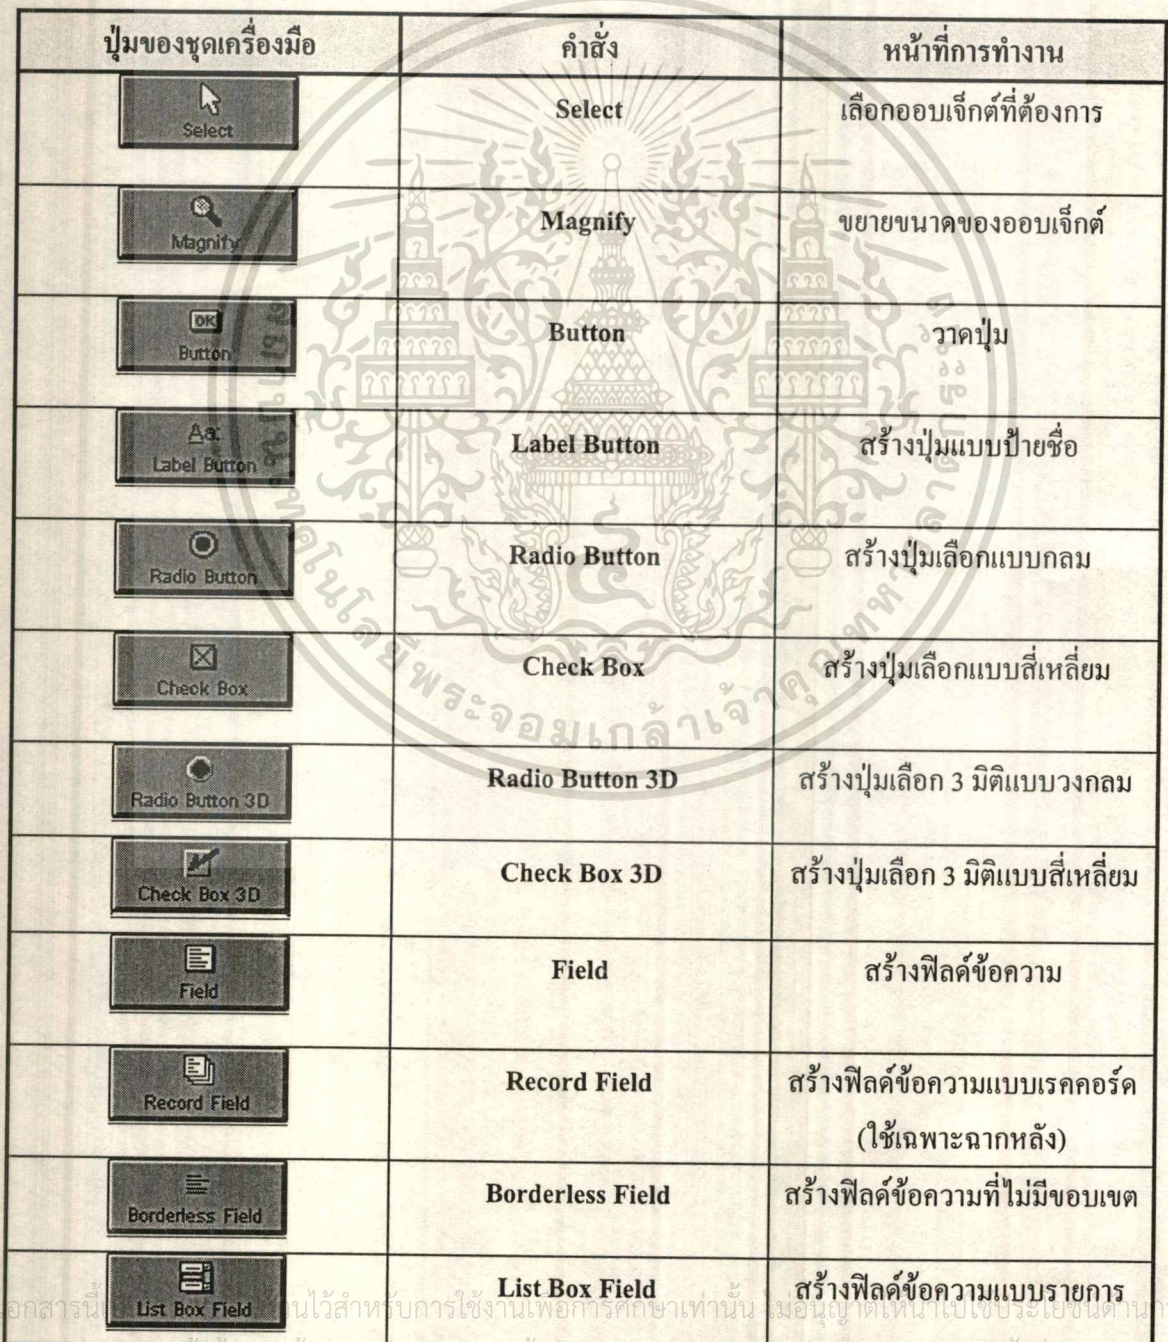 ปุ่มของชุดเครื่องมือ คำสั่ง หน้าที่การทำงาน
Select Select เลือกออบเจ็กต์ที่ต้องการ
Magnify Magnify ขยายขนาดของออบเจ็กต์
OK
Button Button วาดปุ่ม
Aa:
Label Button Label Button สร้างปุ่มแบบป้ายชื่อ
Radio Button Radio Button สร้างปุ่มเลือกแบบกลม
Check Box Check Box สร้างปุ่มเลือกแบบสี่เหลี่ยม
Radio Button 3D Radio Button 3D สร้างปุ่มเลือก 3 มิติแบบวงกลม
Check Box 3D Check Box 3D สร้างปุ่มเลือก 3 มิติแบบสี่เหลี่ยม
Field Field สร้างฟิลด์ข้อความ
Record Field Record Field สร้างฟิลด์ข้อความแบบเรคคอร์ด
(ใช้เฉพาะฉากหลัง)
Borderless Field Borderless Field สร้างฟิลด์ข้อความที่ไม่มีขอบเขต
List Box Field List Box Field สร้างฟิลด์ข้อความแบบรายการ
พระจอมเกล้าเจ้าคุณทหารลาดกระบัง